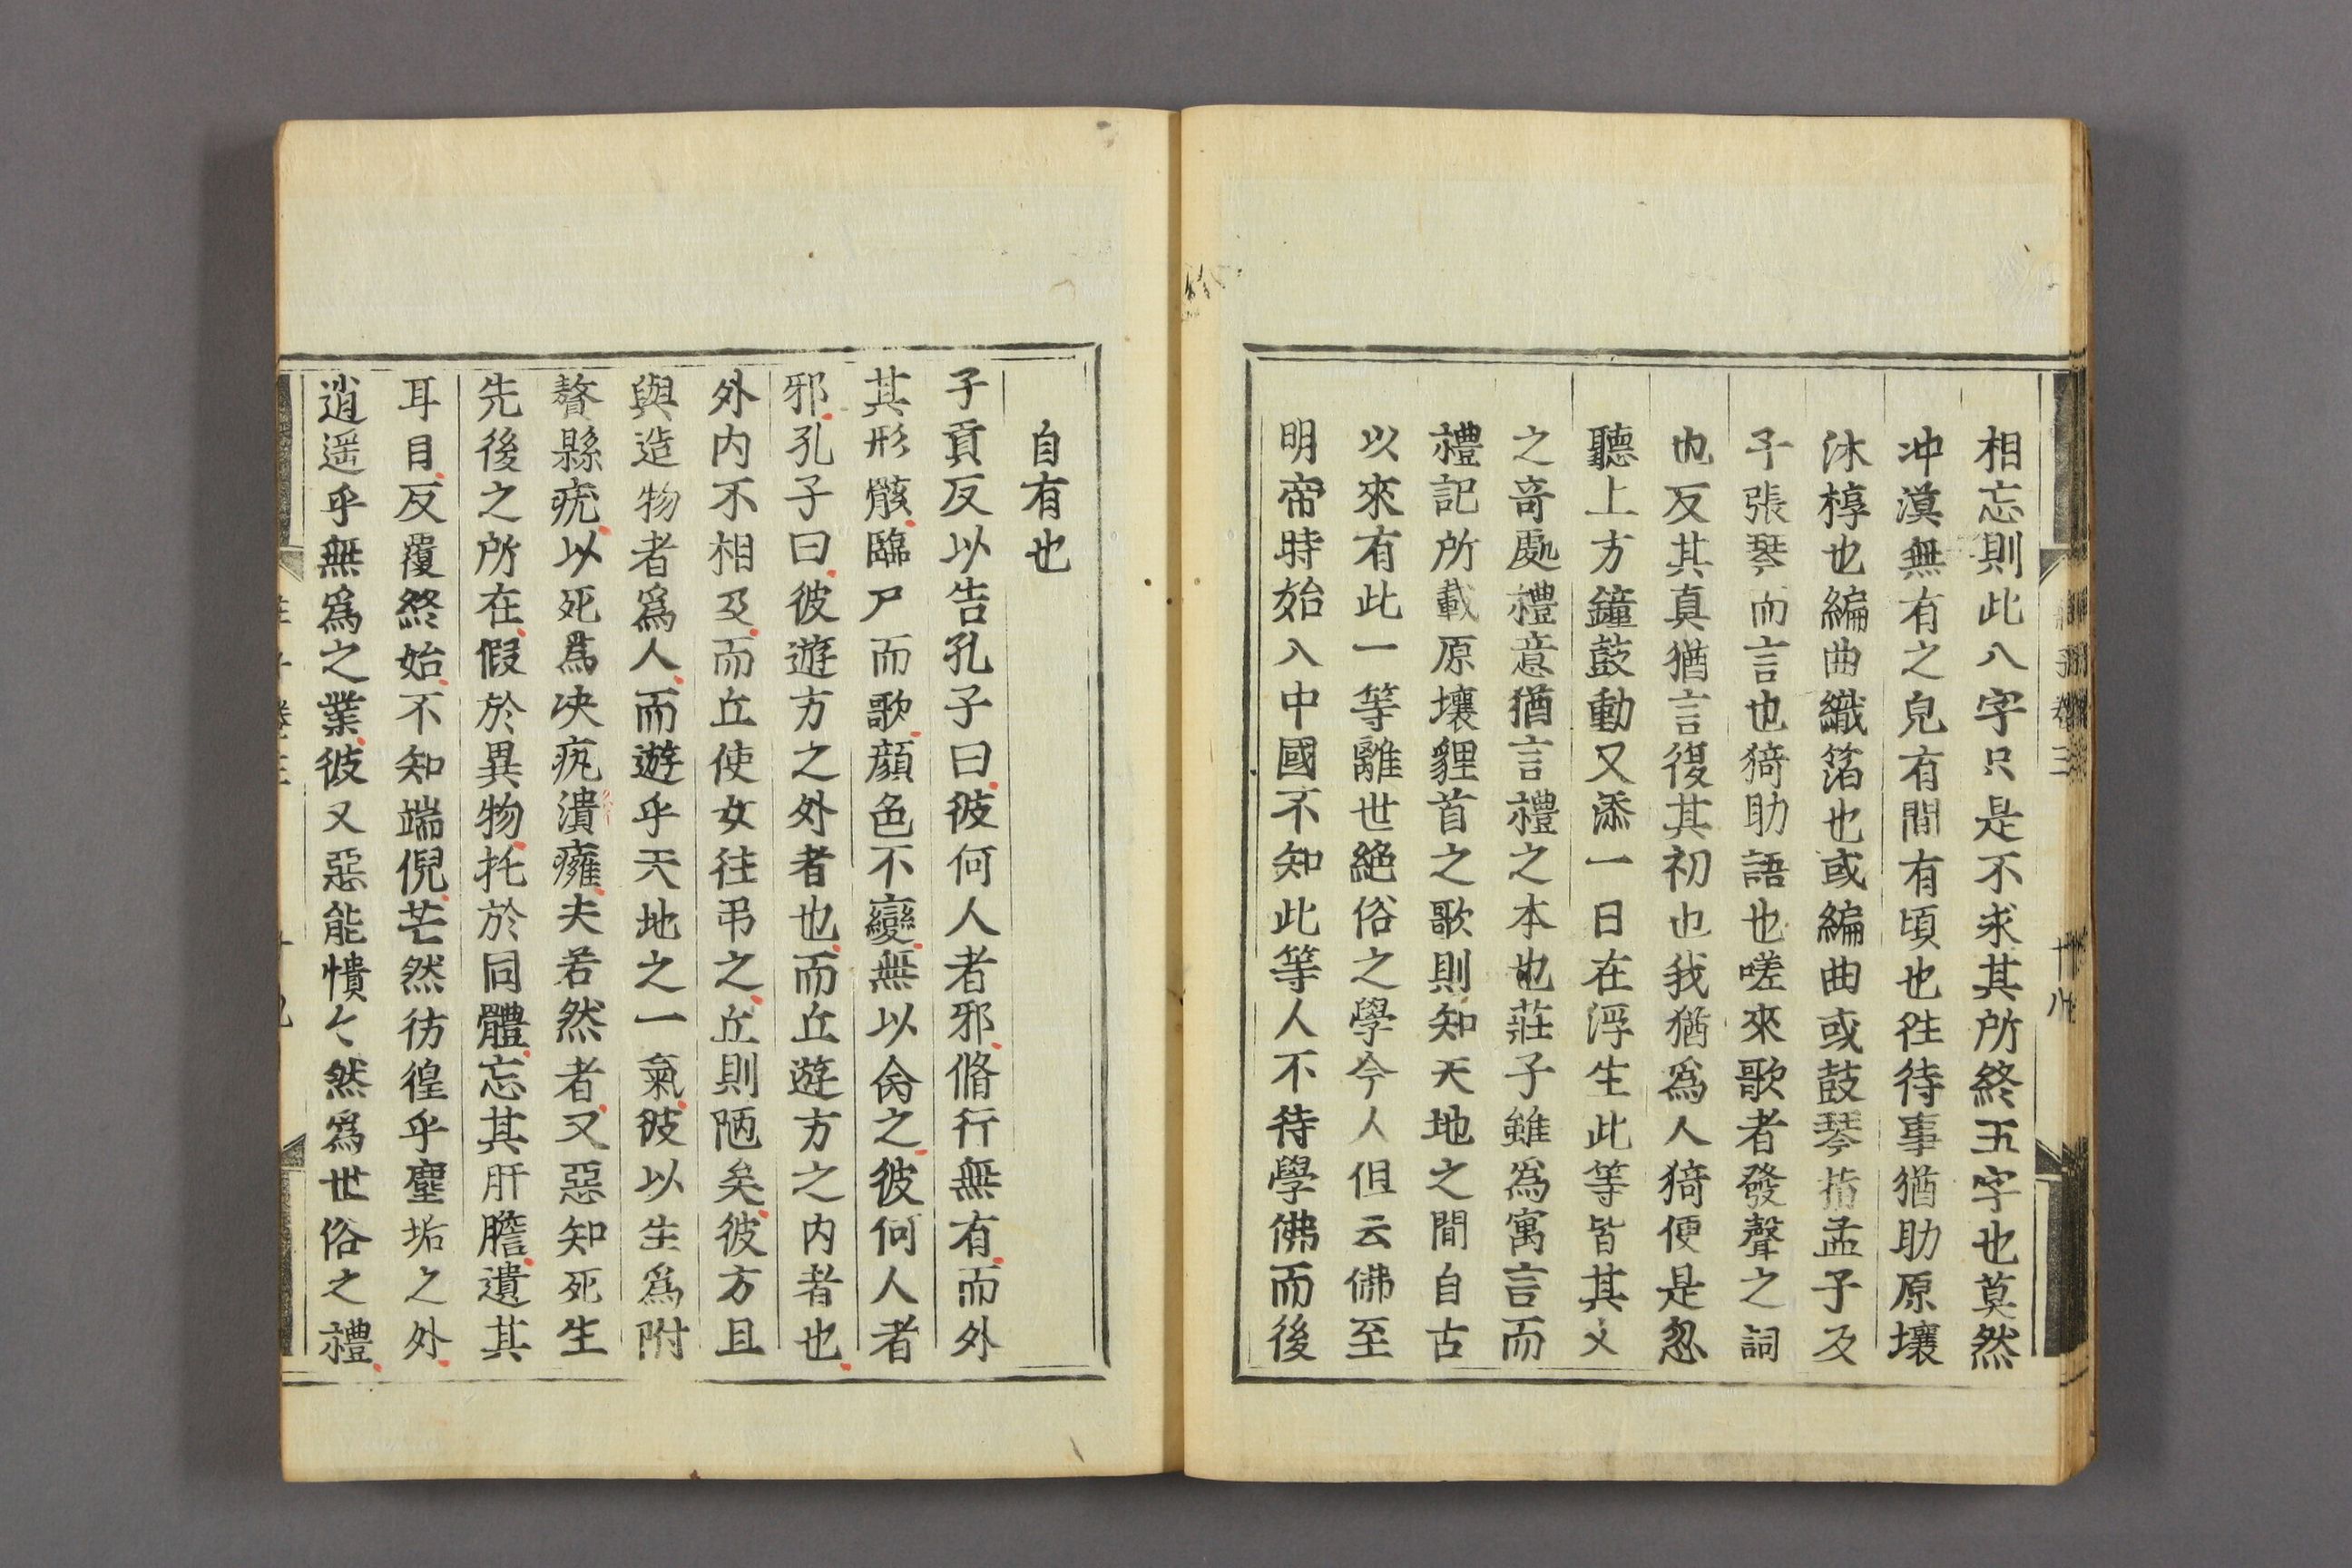 相忘則此八字只是不求其所終五字也莫然
冲漠無有之皃有間有頃也徃待事猶助原壤
沐椁也編曲織箔也或編曲或鼓琴指孟子反
子張琴而言也猗助語也嗟來歌者發聲之詞
也反其真猶言復其初也我猶爲人猗便是忽
聽上方鐘鼓動又添一日在浮生此等皆其文
之奇處禮意猶言禮之本也莊子雖爲寓言而
禮記所載原壤貍首之歌則知天地之間自古
以來有此一等離世絶俗之學今人但云佛至
明帝時始入中國不知此等人不待學佛而後
自有也
子貢反以告孔子曰彼何人者邪脩行無有而外
其形骸臨尸而歌顔色不變無以命之彼何人者
邪孔子曰彼遊方之外者也而丘遊方之内者也
外内不相及而丘使女往弔之丘則陋矣彼方且
與造物者爲人而遊乎天地之一氣彼以生爲附
贅縣疣以死爲决𤴯潰癰夫若然者又惡知死生
先後之所在假於異物托於同體忘其肝膽遺其
耳目反覆終始不知端倪芒然彷徨乎塵垢之外
逍遥乎無爲之業彼又惡能憒〻然爲世俗之禮